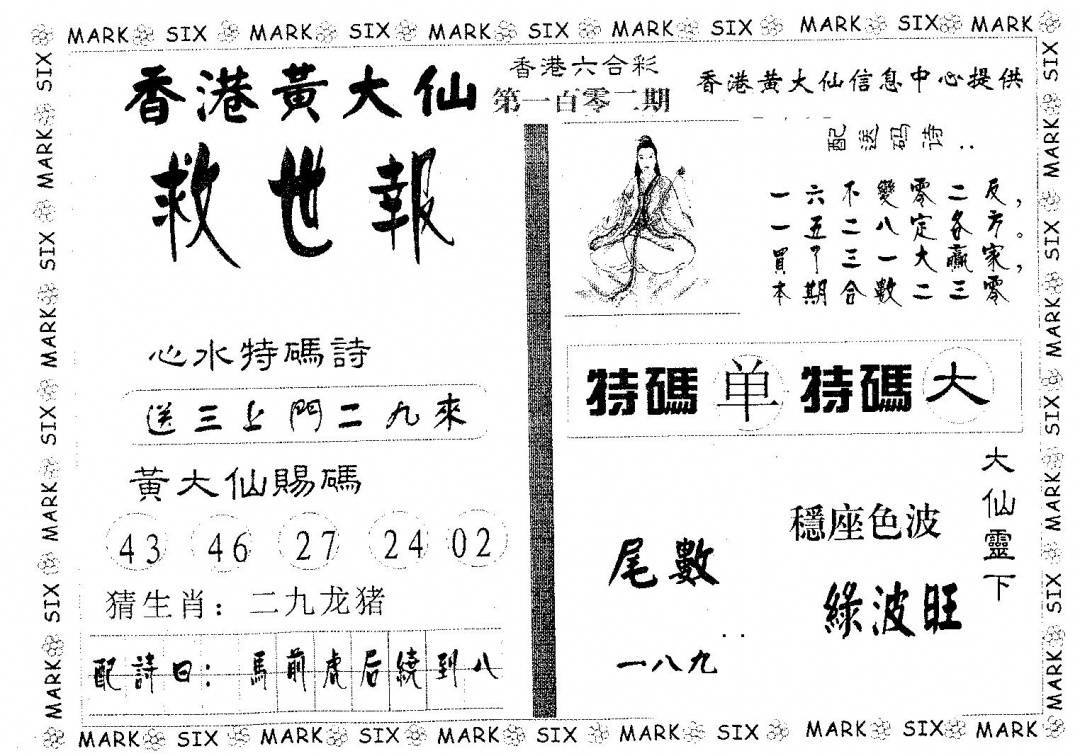 MARK SIX MARK SIX MARK SIX MARK SIX MARK SIX MARK
香港黃大仙
救世報
香港六合彩
第一百零二期
香港黄大仙信息中心提供
配送码诗:
一六不變零二反,
一五二八定各方。
買中三一大贏家,
本期合數二三零
心水特碼詩
送三上門二九來
黃大仙賜碼
43 46 27 24 02
猜生肖:二九龙猪
配詩曰:馬前虎后繞到八
特碼 单 特碼 大
大仙靈下
穩座色波
綠波旺
尾數
一八九
SIX MARK SIX MARK SIX MARK SIX MARK
SIX MARK SIX MARK SIX MARK SIX MARK
MARK SIX MARK SIX MARK SIX MARK SIX MARK SIX MARK